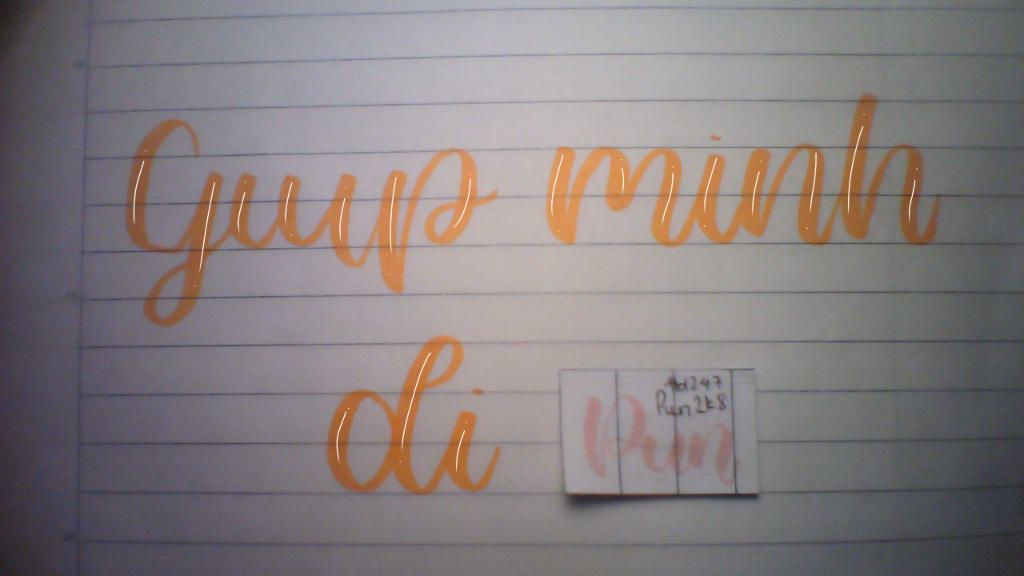 Giup minh
di
Hd247
Pun 2k8
Pun